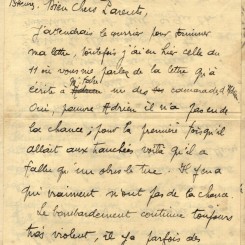 Bien Chers Parents,
J'attendrais le courrier pour terminer
ma lettre, toutefois j'ai eu hier celle du
11 où vous me parlez de la lettre qu'a
écrite à un des camarades d'
Oui, pauvre Adrien il n'a pas eu de
la chance ; pour la première fois qu'il
allait aux tranchées voilà qu'il a
fallu qu'un obus le tue. Il y en a
qui vraiment n'ont pas de la chance.
Le bombardement continue toujours
très violent, il y a parfois des